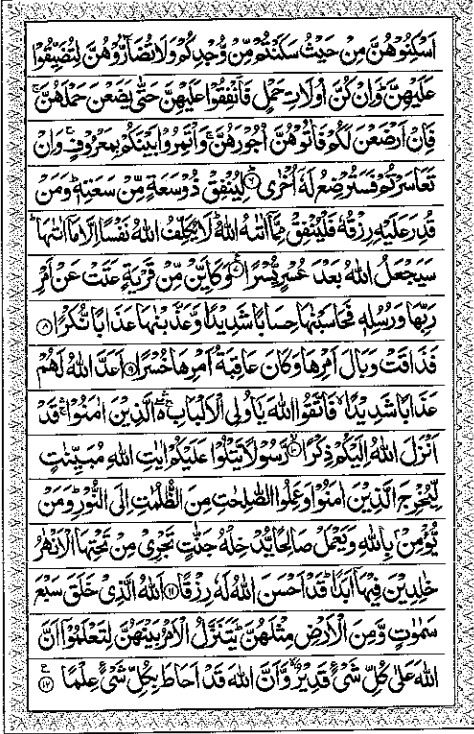 اَسْكِنُوْهُنَّ مِنْ حَيْثُ سَكَنْتُمْ مِّنْ وُّجْدِكُمْ وَلَا تُضَآرُّوْهُنَّ لِتُضَيِّقُوْا
عَلَيْهِنَّ ؕ وَاِنْ كُنَّ اُولَاتِ حَمْلٍ فَاَنْفِقُوْا عَلَيْهِنَّ حَتّٰى يَضَعْنَ حَمْلَهُنَّ ۚ
فَاِنْ اَرْضَعْنَ لَكُمْ فَاٰتُوْهُنَّ اُجُوْرَهُنَّ ۚ وَاْتَمِرُوْا بَيْنَكُمْ بِمَعْرُوْفٍ ۚ وَاِنْ
تَعَاسَرْتُمْ فَسَتُرْضِعُ لَهٗٓ اُخْرٰى ؕ۶ لِيُنْفِقْ ذُوْ سَعَةٍ مِّنْ سَعَتِهٖ ؕ وَمَنْ
قُدِرَ عَلَيْهِ رِزْقُهٗ فَلْيُنْفِقْ مِمَّآ اٰتٰىهُ اللّٰهُ ؕ لَا يُكَلِّفُ اللّٰهُ نَفْسًا اِلَّا مَآ اٰتٰىهَا ؕ
سَيَجْعَلُ اللّٰهُ بَعْدَ عُسْرٍ يُّسْرًا ۷ وَكَاَيِّنْ مِّنْ قَرْيَةٍ عَتَتْ عَنْ اَمْرِ
رَبِّهَا وَرُسُلِهٖ فَحَاسَبْنٰهَا حِسَابًا شَدِيْدًا وَّعَذَّبْنٰهَا عَذَابًا نُّكْرًا ۸
فَذَاقَتْ وَبَالَ اَمْرِهَا وَكَانَ عَاقِبَةُ اَمْرِهَا خُسْرًا ۹ اَعَدَّ اللّٰهُ لَهُمْ
عَذَابًا شَدِيْدًا ۙ فَاتَّقُوا اللّٰهَ يٰٓاُولِي الْاَلْبَابِ ۛۚ الَّذِيْنَ اٰمَنُوْا ۛ قَدْ
اَنْزَلَ اللّٰهُ اِلَيْكُمْ ذِكْرًا ۱۰ رَّسُوْلًا يَّتْلُوْا عَلَيْكُمْ اٰيٰتِ اللّٰهِ مُبَيِّنٰتٍ
لِّيُخْرِجَ الَّذِيْنَ اٰمَنُوْا وَعَمِلُوا الصّٰلِحٰتِ مِنَ الظُّلُمٰتِ اِلَى النُّوْرِ ؕ وَمَنْ
يُّؤْمِنْۢ بِاللّٰهِ وَيَعْمَلْ صَالِحًا يُّدْخِلْهُ جَنّٰتٍ تَجْرِيْ مِنْ تَحْتِهَا الْاَنْهٰرُ
خٰلِدِيْنَ فِيْهَآ اَبَدًا ؕ قَدْ اَحْسَنَ اللّٰهُ لَهٗ رِزْقًا ۱۱ اَللّٰهُ الَّذِيْ خَلَقَ سَبْعَ
سَمٰوٰتٍ وَّمِنَ الْاَرْضِ مِثْلَهُنَّ ؕ يَتَنَزَّلُ الْاَمْرُ بَيْنَهُنَّ لِتَعْلَمُوْٓا اَنَّ
اللّٰهَ عَلٰى كُلِّ شَيْءٍ قَدِيْرٌ ۙ وَّاَنَّ اللّٰهَ قَدْ اَحَاطَ بِكُلِّ شَيْءٍ عِلْمًا ۱۲